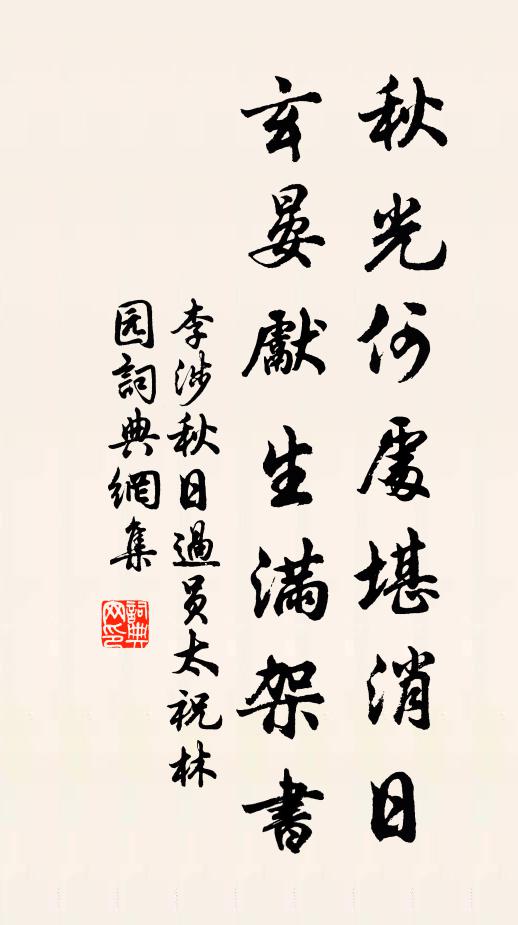 秋光何處堪消日
玄晏獻生滿架書
李涉秋日過员太祝林
园詞典網集
詞典網印